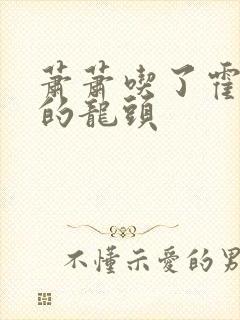 蕭蕭喫了霍
的龍頭
不懂示愛的男